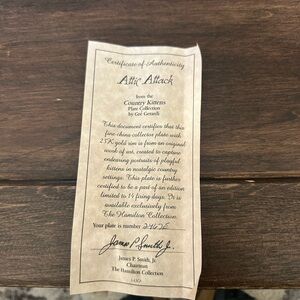 Certificate of Authenticity
Attic Attack
from the
Country Kittens
Plate Collection
by Gré Gerardi
This document certifies that this
fine china collector plate with
23K gold rim is from an original
work of art, created to capture
endearing portraits of playful
kittens in nostalgic country
settings. This plate is further
certified to be a part of an edition
limited to 14 firing days. It is
available exclusively from
The Hamilton Collection.
Your plate is number
James P. Smith Jr.
James P. Smith, Jr.
Chairman
The Hamilton Collection